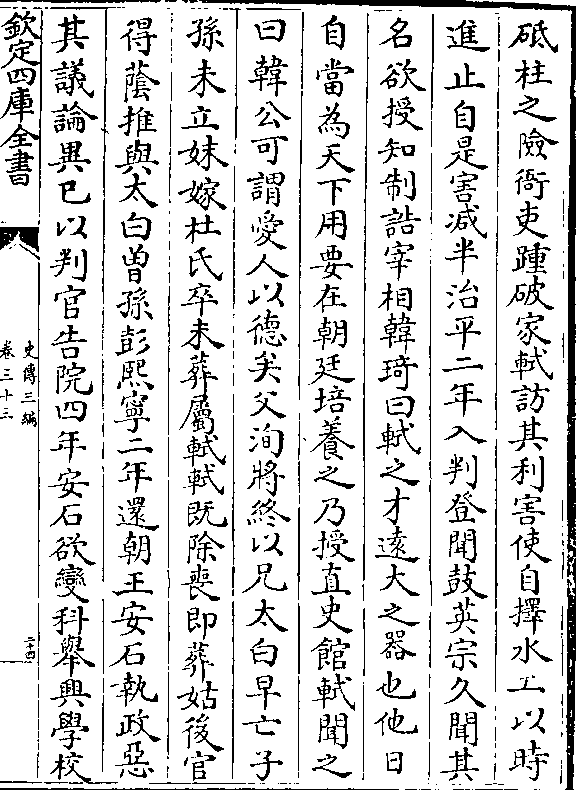 砥柱之險衙吏踵破家軾訪其利害使自擇水工以時
進止自是害減半治平二年入判登聞鼓英宗久聞其
名欲授知制誥宰相韓琦曰軾之才遠大之器也他日
自當為天下用要在朝廷培養之乃授直史館軾聞之
曰韓公可謂愛人以德矣父洵將終以兄太白早亡子
孫未立妹嫁杜氏卒未葬屬軾軾既除喪即葬姑後官
得蔭推與太白曾孫彭熙寧二年還朝王安石執政惡
其議論異已以判官告院四年安石欲變科舉興學校
欽定四庫全書
史傳三編
卷三十三
二十四